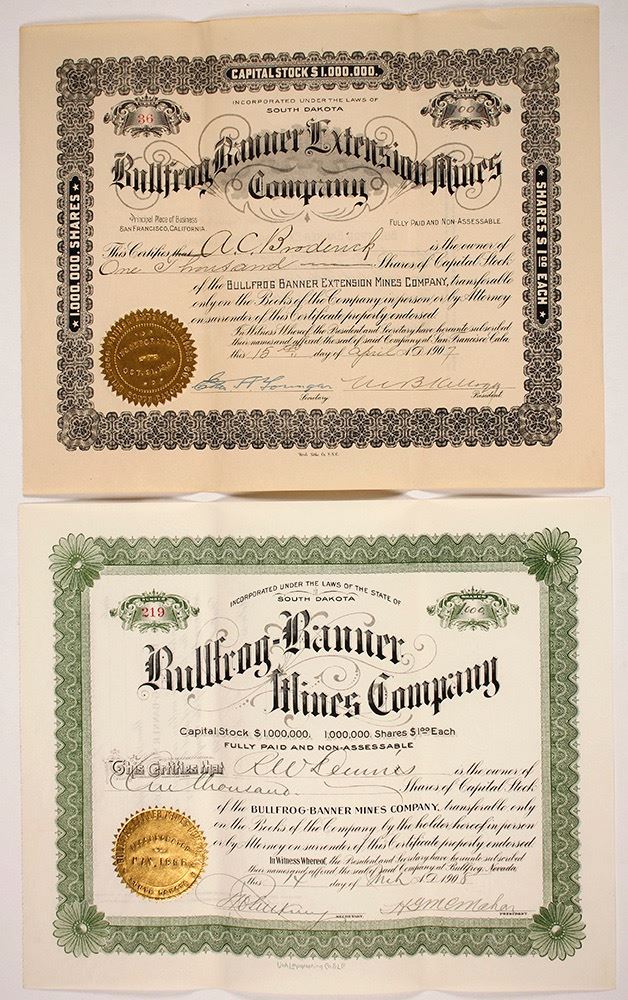 CAPITAL STOCK $1,000,000.
INCORPORATED UNDER THE LAWS OF
SOUTH DAKOTA
NUMBER
36
1000
Bullfrog Banner Extension Mines
Company
1,000,000. SHARES
SHARES $1.00 EACH
Principal Place of Business
SAN FRANCISCO, CALIFORNIA.
FULLY PAID AND NON-ASSESSABLE.
This Certifies that A.C. Broderick is the owner of
One Thousand Shares of Capital Stock
of the BULLFROG BANNER EXTENSION MINES COMPANY, transferable
only on the Books of the Company in person or by Attorney
on surrender of this Certificate properly endorsed.
In Witness Whereof, the President and Secretary have hereunto subscribed
their names and affixed the seal of said Company at San Francisco Cala.
this 15th day of April A.D. 1907
INCORPORATED
Secretary
President
INCORPORATED UNDER THE LAWS OF THE STATE OF
SOUTH DAKOTA
219
1000
Bullfrog-Banner
Mines Company
Capital Stock $1,000,000, 1,000,000. Shares $1.00 Each
FULLY PAID AND NON-ASSESSABLE
This Certifies that R W Dennis is the owner of
One thousand. Shares of Capital Stock
of the BULLFROG-BANNER MINES COMPANY, transferable only
on the Books of the Company by the holder hereof in person
or by Attorney on surrender of this Certificate properly endorsed.
In Witness Whereof, the President and Secretary have hereunto subscribed
their names and affixed the seal of said Company at Bullfrog, Nevada
this 14 day of Mch A.D. 1908
INCORPORATED
SOUTH DAKOTA
SECRETARY.
PRESIDENT